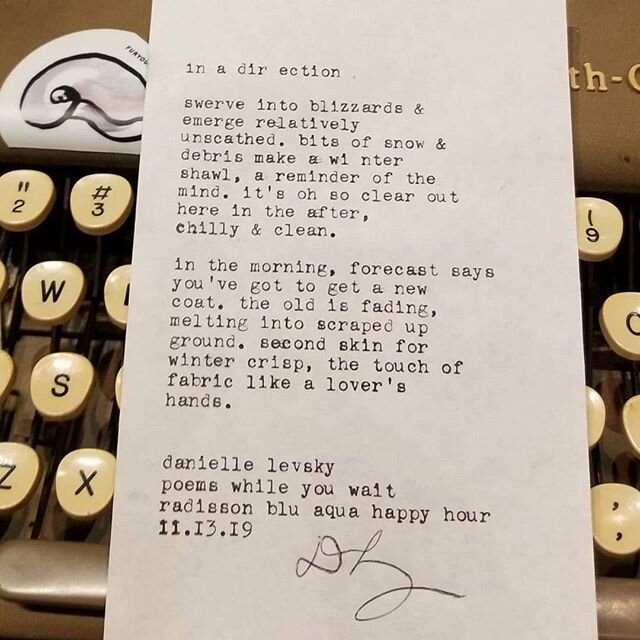 in a dir ection
swerve into blizzards &
emerge relatively
unscathed. bits of snow &
debris make a wi nter
shawl, a reminder of the
mind. it's oh so clear out
here in the after,
chilly & clean.
in the morning, forecast says
you've got to get a new
coat. the old is fading,
melting into scraped up
ground. second skin for
winter crisp, the touch of
fabric like a lover's
hands.
danielle levsky
poems while you wait
radisson blu aqua happy hour
11.13.19
th-C
" 2
# 3
( 9
W
S
Z
X